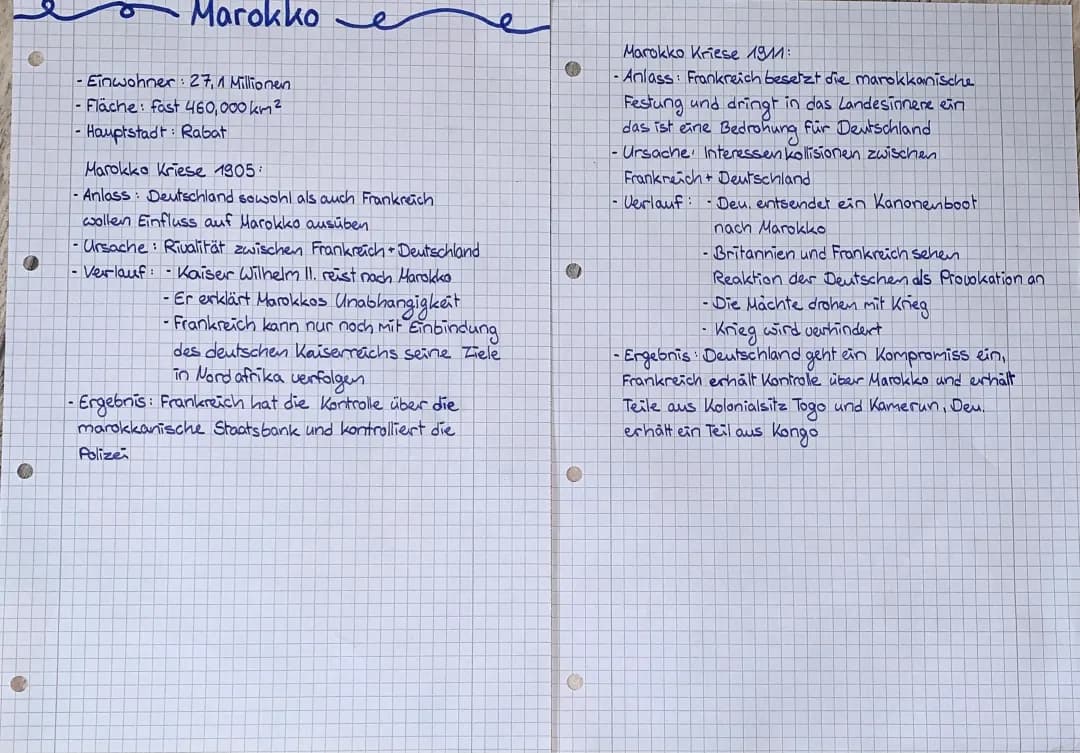 Marokko
- Einwohner : 27,1 Millionen
- Fläche : fast 460,000 km²
- Hauptstadt : Rabat
Marokko Kriese 1905:
- Anlass : Deutschland sowohl als auch Frankreich
wollen Einfluss auf Marokko ausüben
- Ursache : Rivalität zwischen Frankreich + Deutschland
- Verlauf : - Kaiser Wilhelm II. reist nach Marokko
- Er erklärt Marokkos Unabhangigkeit
- Frankreich kann nur noch mit Einbindung
des deutschen Kaiserreichs seine Ziele
in Nordafrika verfolgen
- Ergebnis : Frankreich hat die Kontrolle über die
marokkanische Staatsbank und kontrolliert die
Polizei
Marokko Kriese 1911:
- Anlass : Frankreich besetzt die marokkanische
Festung und dringt in das Landesinnere ein
das ist eine Bedrohung für Deutschland
- Ursache: Interessenkollisionen zwischen
Frankreich + Deutschland
- Verlauf : - Deu. entsendet ein Kanonenboot
nach Marokko
- Britannien und Frankreich sehen
Reaktion der Deutschen als Provokation an
- Die Mächte drohen mit Krieg
- Krieg wird verhindert
- Ergebnis : Deutschland geht ein Kompromiss ein,
Frankreich erhält Kontrolle über Marokko und erhält
Teile aus Kolonialsitz Togo und Kamerun, Deu.
erhält ein Teil aus Kongo